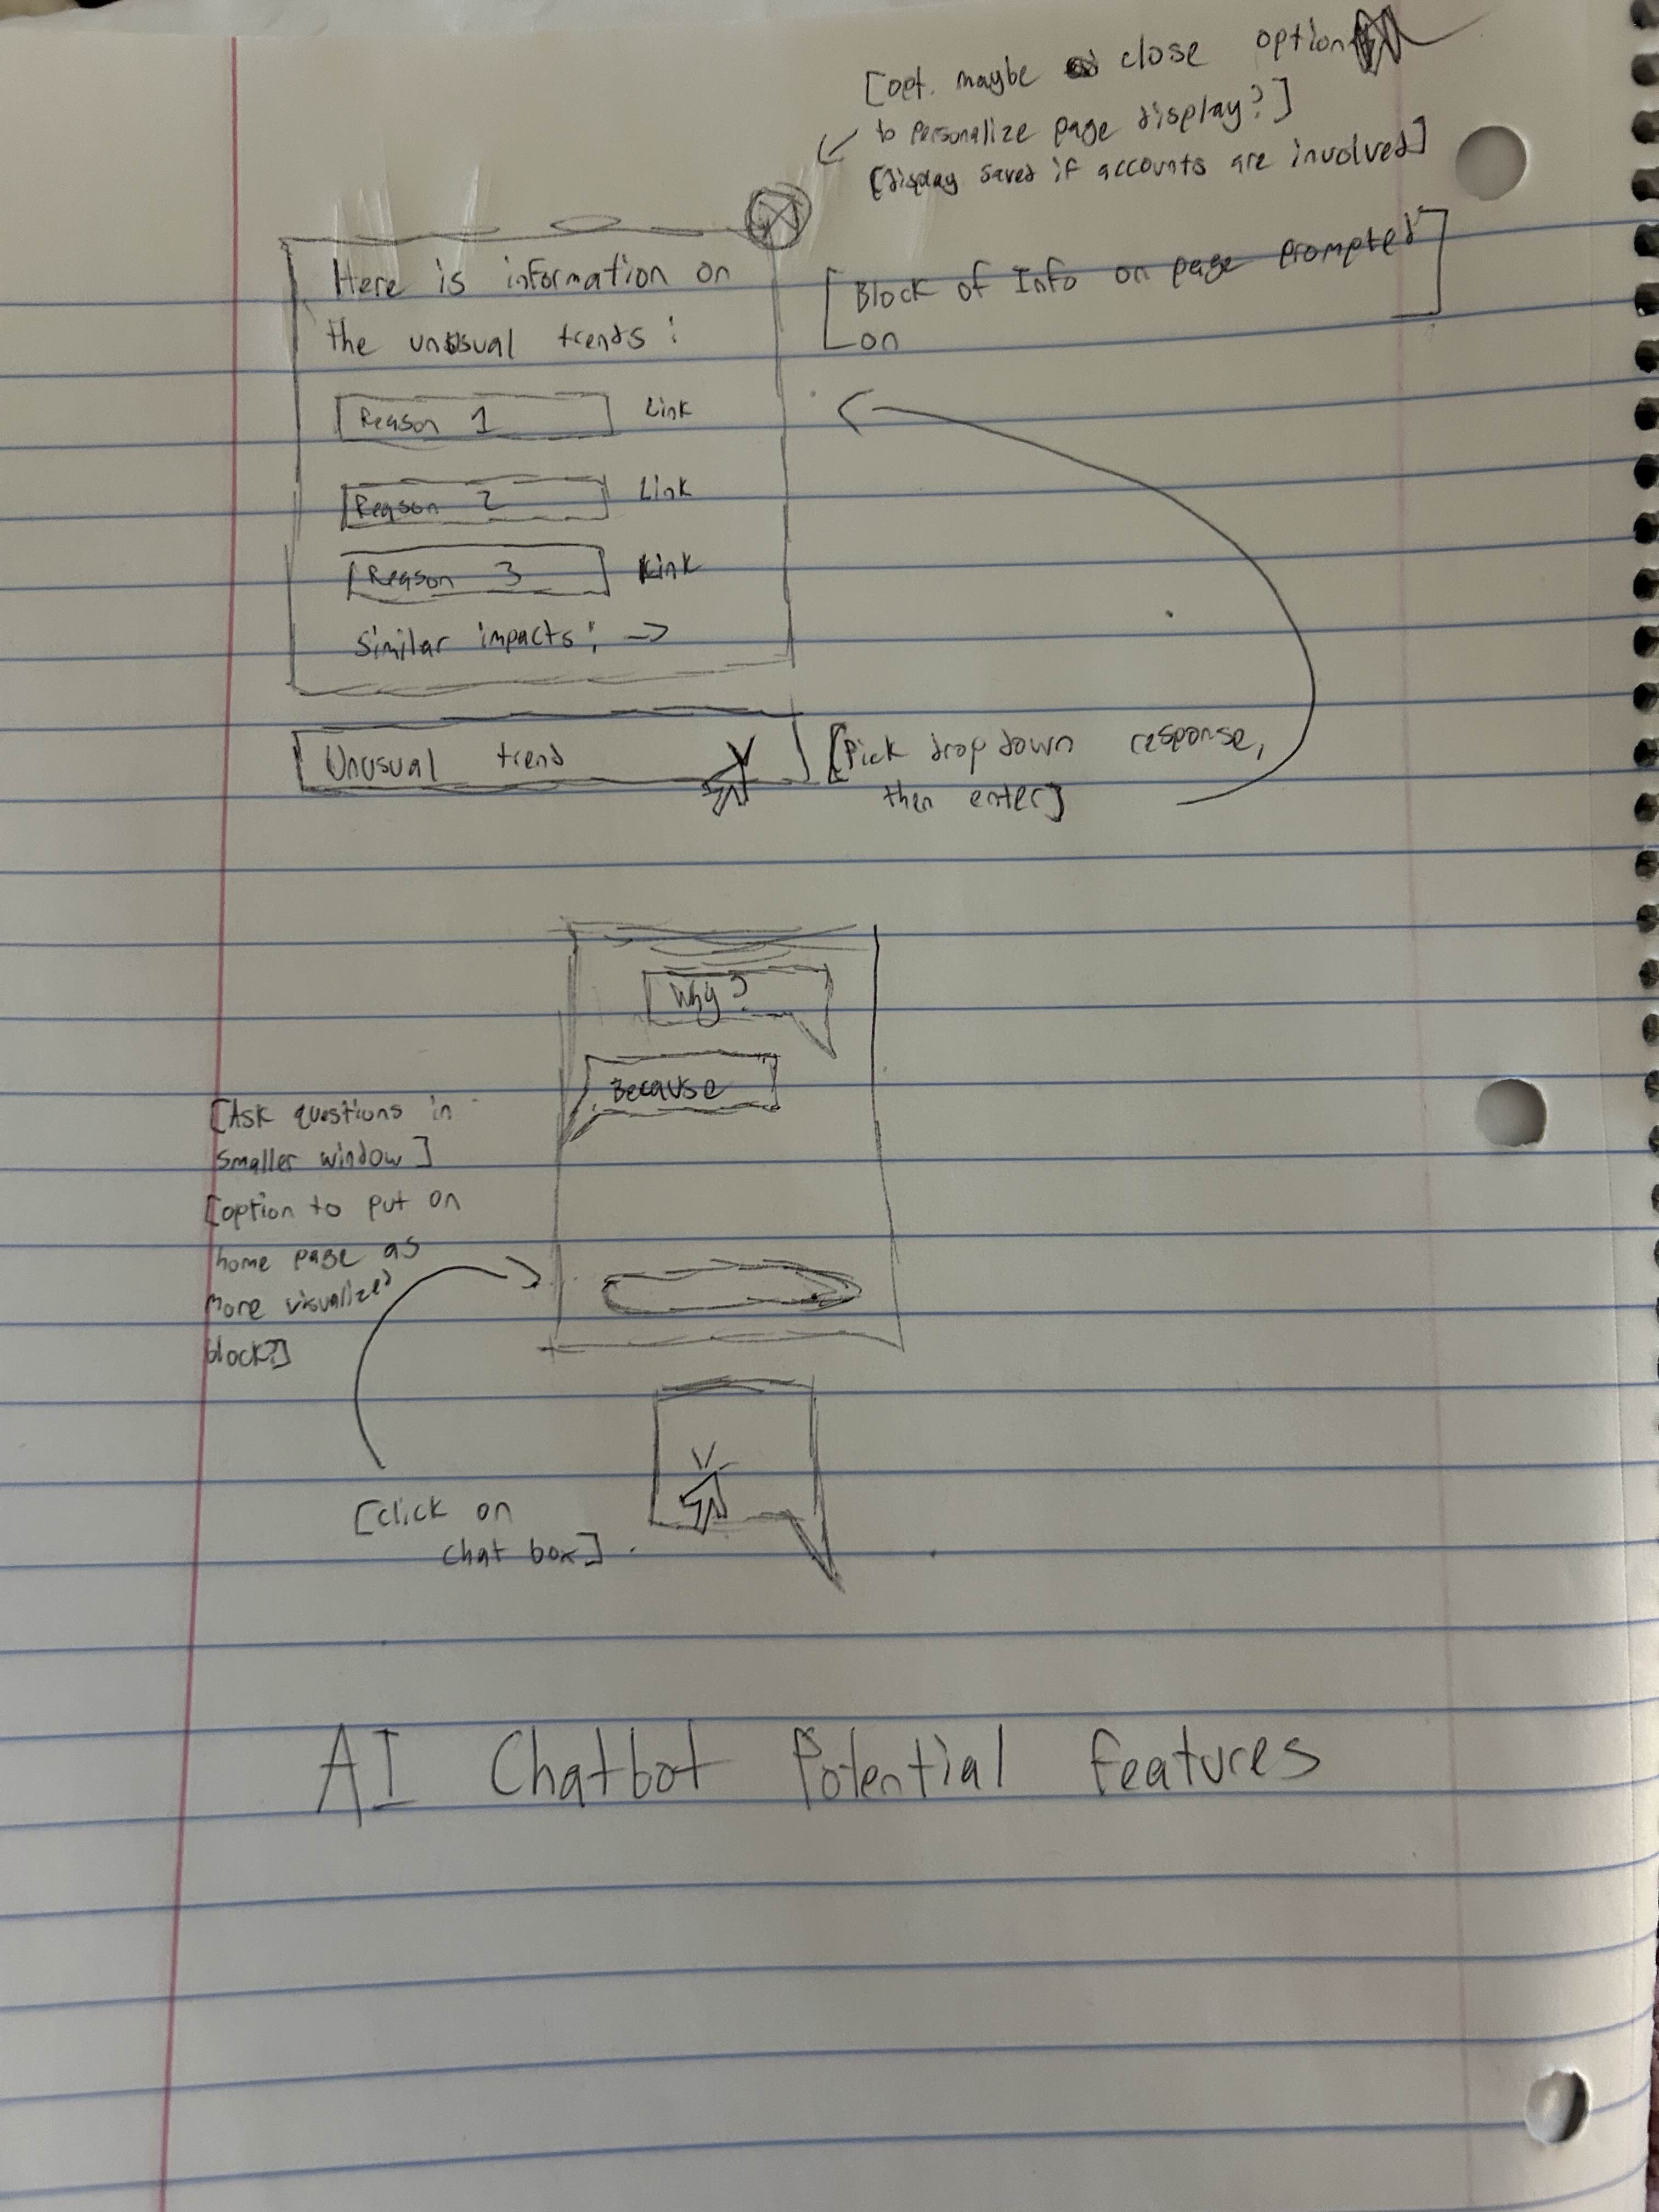 [opt. maybe close option
to personalize page display?]
[display saved if accounts are involved]
Here is information on
the unusual trends:
[Block of Info on page prompted
on
Reason 1 Link
Reason 2 Link
Reason 3 Link
Similar impacts: →
Unusual trend
[Pick drop down response,
then enter]
Why?
Because
[Ask questions in
smaller window]
[option to put on
home page as
more visualized
block?]
[click on
chat box]
AI Chatbot Potential Features